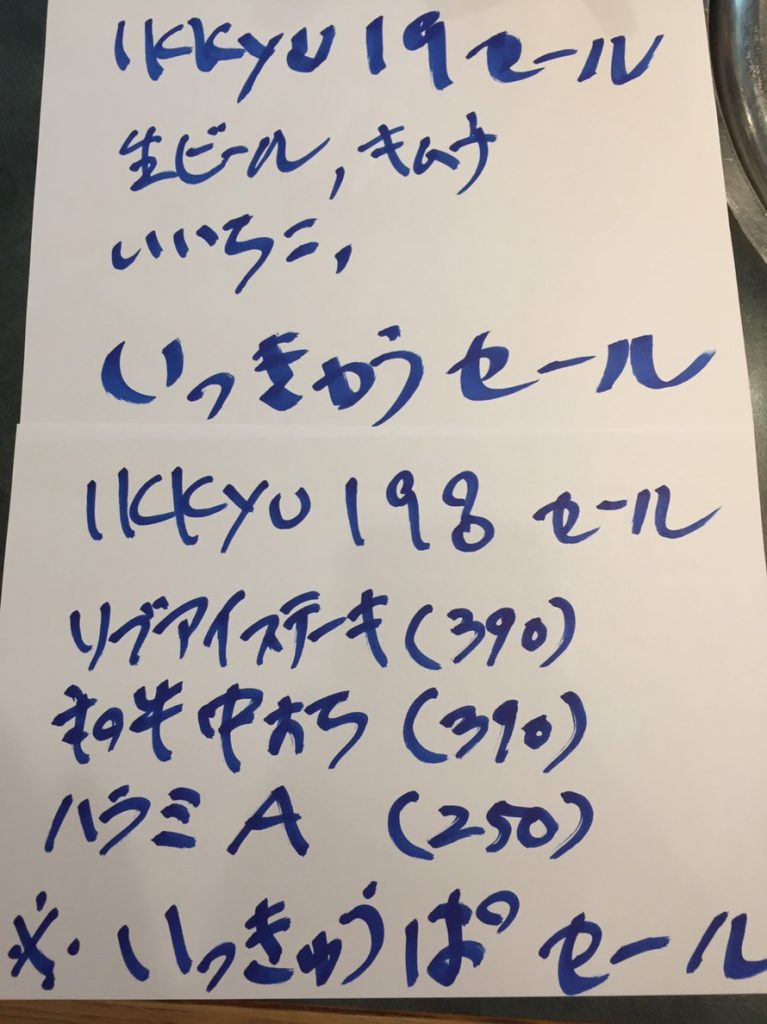 IKKYU 19 セール
生ビール, キムチ
いいちこ,
いっきゅう セール
IKKYU 198 セール
リブアイステーキ (390)
中おち (390)
ハラミ A (250)
※. いっきゅうぱ セール